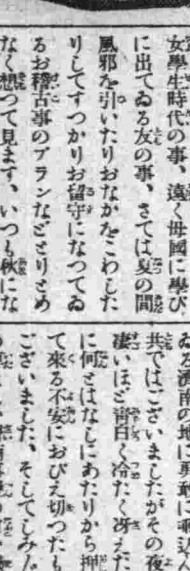 女學生時代の事、遠く母國に學び
に出てゐる友の事、さては夏の間
風邪を引いたりおなかをこわした
りしてすつかりお留守になつてゐ
るお稽古事のプランなどとりとめ
なく想つて見ます、いつも秋にな
共ではございましたがその夜
凄いほど靑白く冷たく冴えた
に何とはなしにあたりから押
て來る不安におびえ切つたも
ございました、そしてしみ